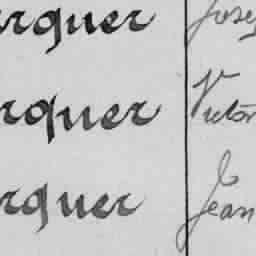 rquer Josep
rquer Victor
rquer Jean